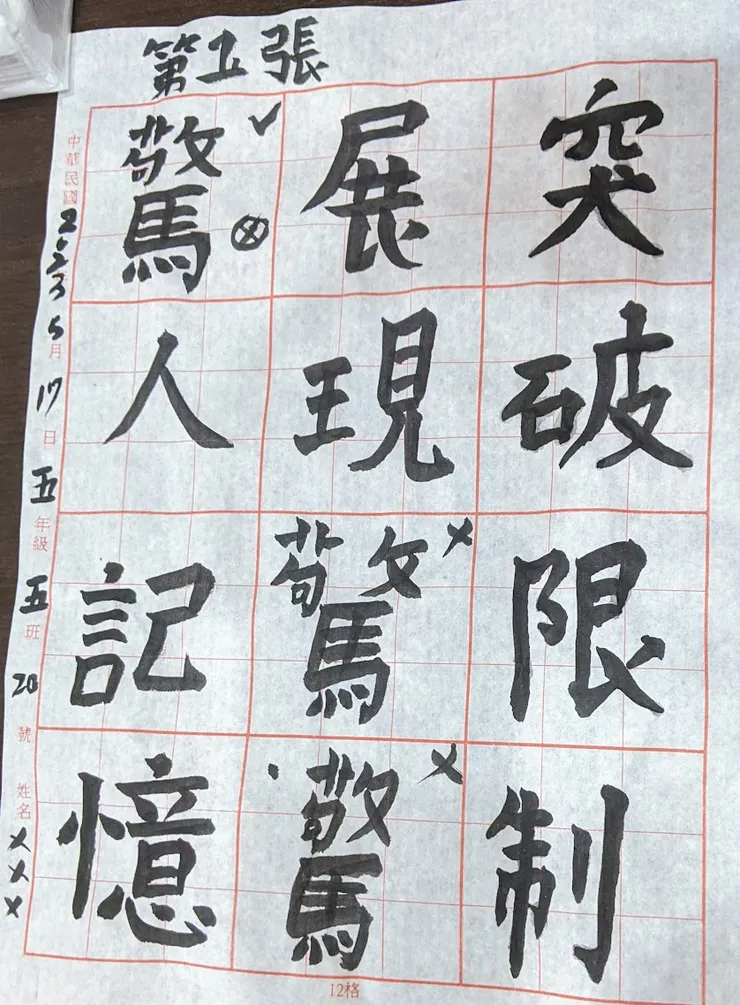 第五張
突破限制
展現驚驚 ✗ ✗
驚人記憶 ✓ ⊗
中華民國2023 5月17日五年級五班20號 姓名×××
12格